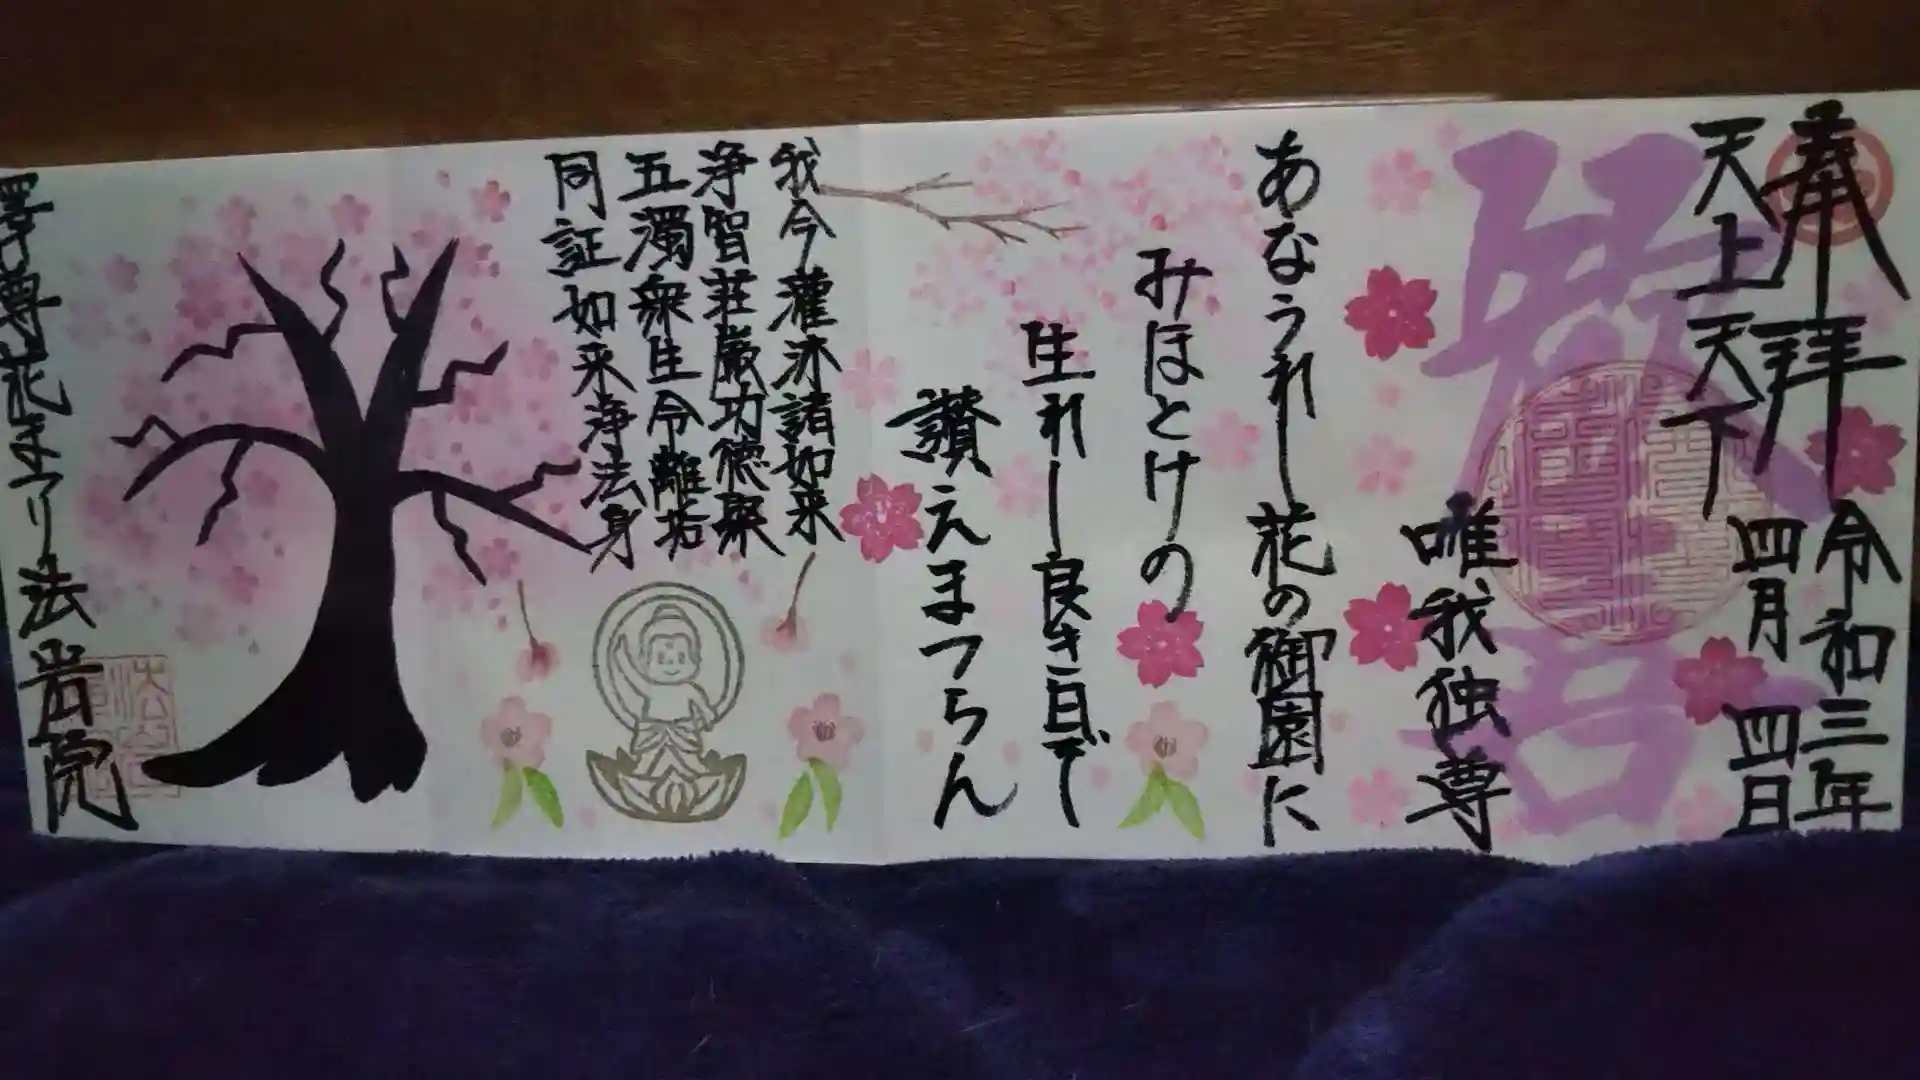 奉拝
令和三年
四月四日
天上天下
唯我独尊
あなうれし花の御園に
みほとけの
生れし良き日ぞ
讃えまつらん
我今灌沐諸如来
浄智荘厳功徳聚
五濁衆生令離垢
同証如来浄法身
釋尊花まつり法岩院